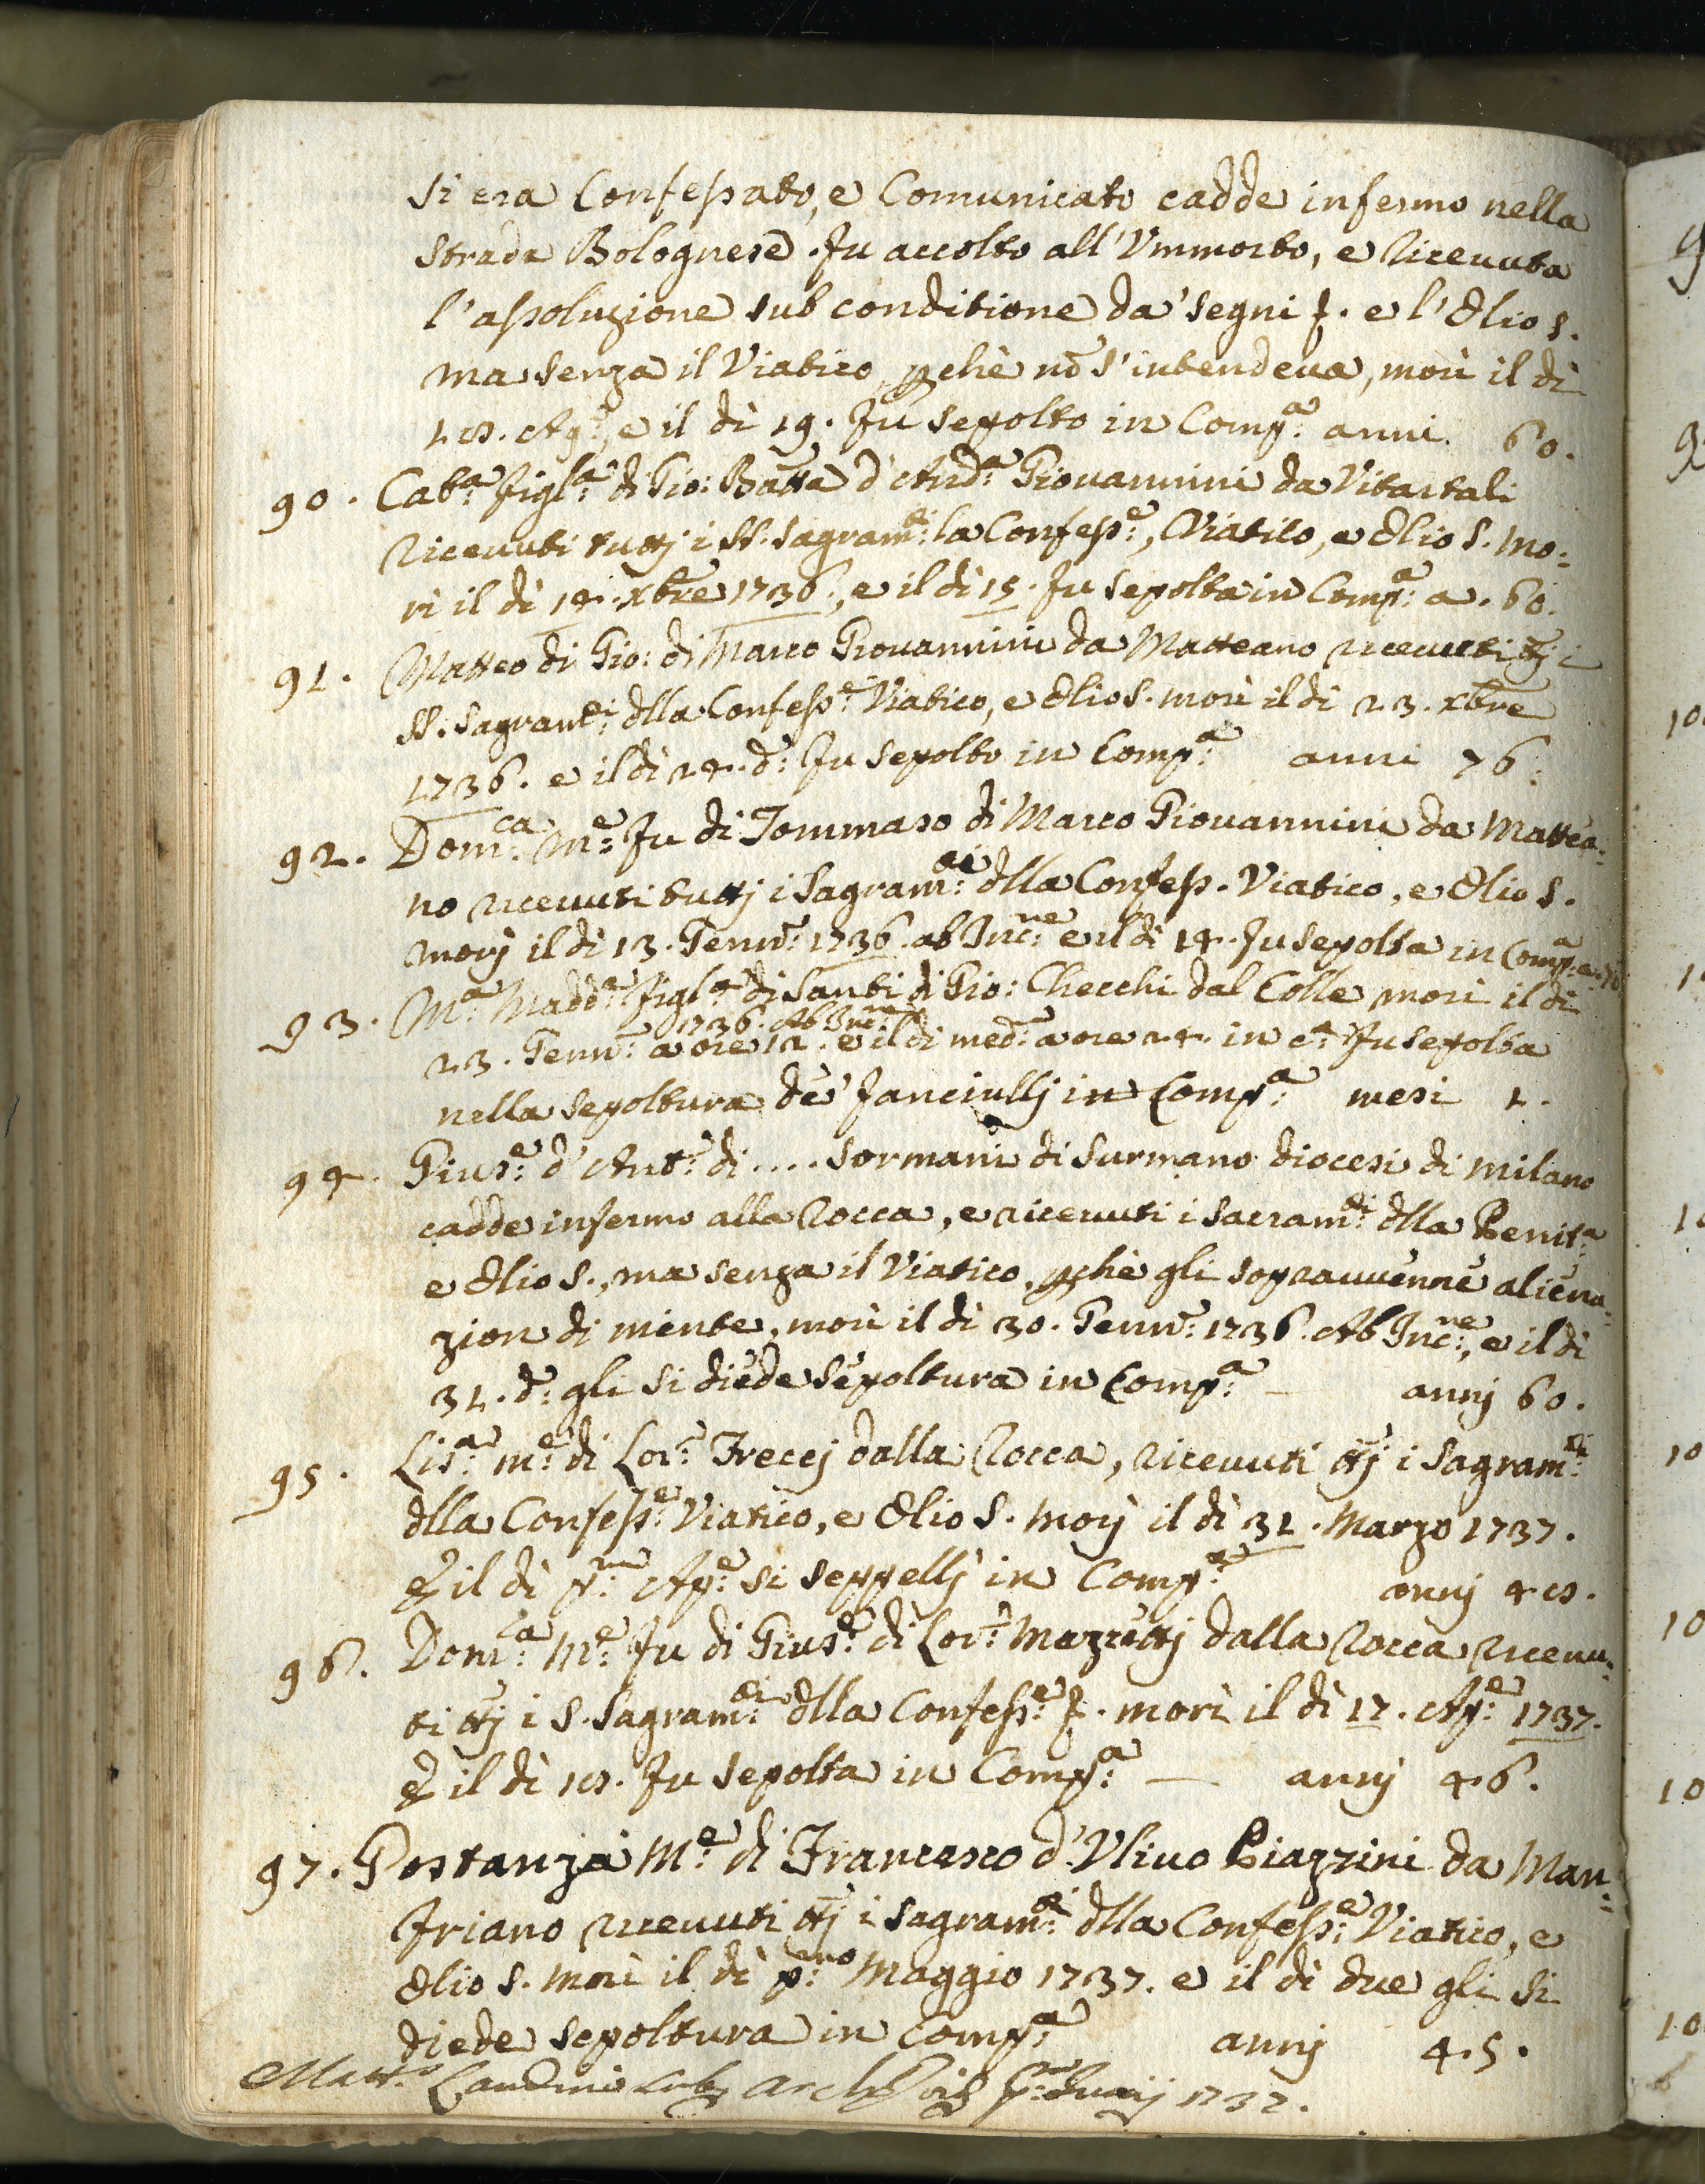 si era Confessato, e Comunicato cadde infermo nella
strada Bolognese. Fu accolto all'Vmmorto, e ricevuta
l'assoluzione sub conditione da' segni &. e l'Olio S.
ma senza il Viatico, pchè nō s'intendeva, morì il dì
18. Ag:, e il dì 19. fu sepolto in Comp:a anni. 60.
90. Cat:a figl:a di Gio: Batta d'And:a Giovannini da Vitartali
ricevuti tuttj i SS. Sagram:ti la Confess:e, Viatico, e Olio S. mo:
rì il dì 14. Xbre 1736., e il dì 15. fu sepolta in Comp:a a. 60.
91. Matteo di Gio: di Marco Giovannini da Matteano ricevuti ttj i
SS. Sagram:ti dlla Confess:e Viatico, e Olio S. morì il dì 23. Xbre
1736. e il dì 24. d: fu sepolto in Comp:a anni 76:
92. Dom:ca M:e fu di Tommaso di Marco Giovannini da Mattea:
no ricevuti tuttj i Sagram:ti dlla Confess. Viatico, e Olio S.
morj il dì 13. Genn: 1736. ab Inc:ne e il dì 14. fu sepolta in Comp:a a. 70
93. M:a Madd:a figl:a di Santi di Gio: Checchi dal Colle morì il dì
1736. Ab Inc:ne
23. Genn: a ore 12. e il dì med: a ore 24. in c:a fu sepolta
nella sepoltura de' fanciullj in Comp:a mesi 1.
94. Gius:e d'Ant: di .... Sormani di Surmano diocesi di Milano
cadde infermo alla Rocca, e ricevuti i Sacram:ti dlla Penit:a
e Olio S., ma senza il Viatico, pchè gli sopravvenne aliena:
zion di mente, morì il dì 30. Genn: 1736. Ab Inc:ne, e il dì
31. d: gli si diede sepoltura in Comp:a — annj 60.
95. Lis:a m:e di Lor: Freccj dalla Rocca, ricevuti ttj i Sagram:ti
dlla Confess:e Viatico, e Olio S. morj il dì 31. Marzo 1737.
& il dì p:mo Ap:e si seppellj in Comp:a annj 48.
96. Dom:ca M:e fu di Gius:e di Lor: Mazzettj dalla Rocca ricevu:
ti ttj i S. Sagram:ti dlla Confess:e &. morì il dì 17. Ap:e 1737.
& il dì 18. fu sepolta in Comp:a — annj 46.
97. Gostanza M:e di Francesco d'Vlivo Piazzini da Man:
friano ricevuti ttj i Sagram:ti dlla Confess:e Viatico, e
Olio S. morì il dì p:mo Maggio 1737. e il dì due gli si
diede sepoltura in Comp:a annj 45.
Matt: Landini 1737.